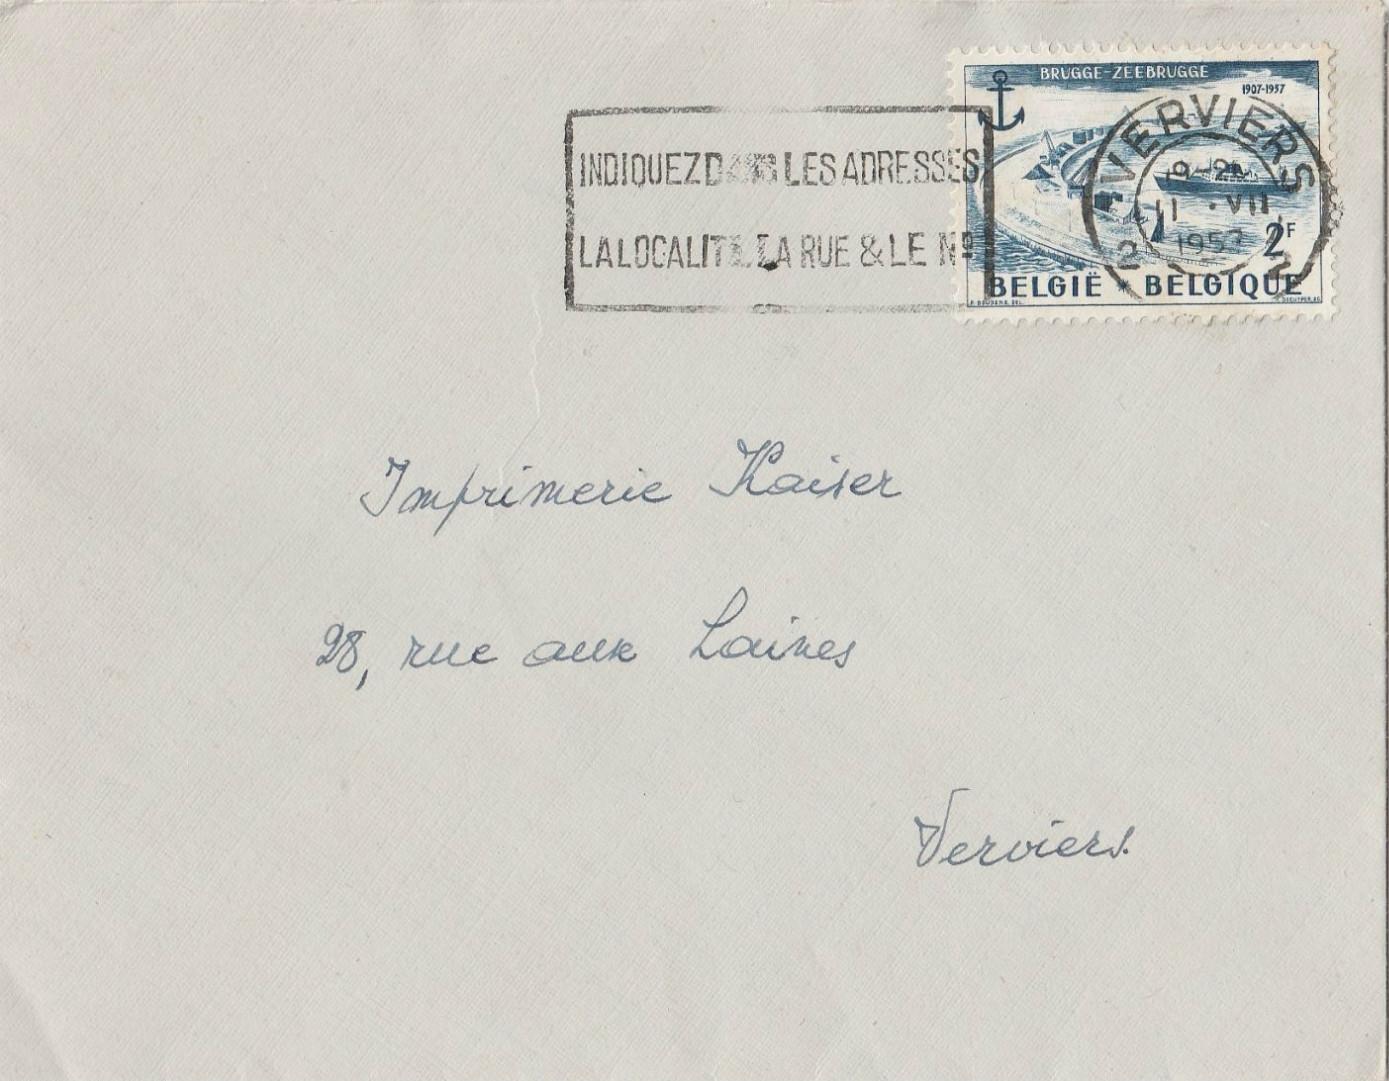 BRUGGE-ZEEBRUGGE
1907-1957
INDIQUEZ DANS LES ADRESSES
LA LOCALITÉ, LA RUE & LE Nº
VERVIERS
II · VII
1957
2 2
2F
BELGIË * BELGIQUE
Imprimerie Kaiser
28, rue aux Laines
Verviers.